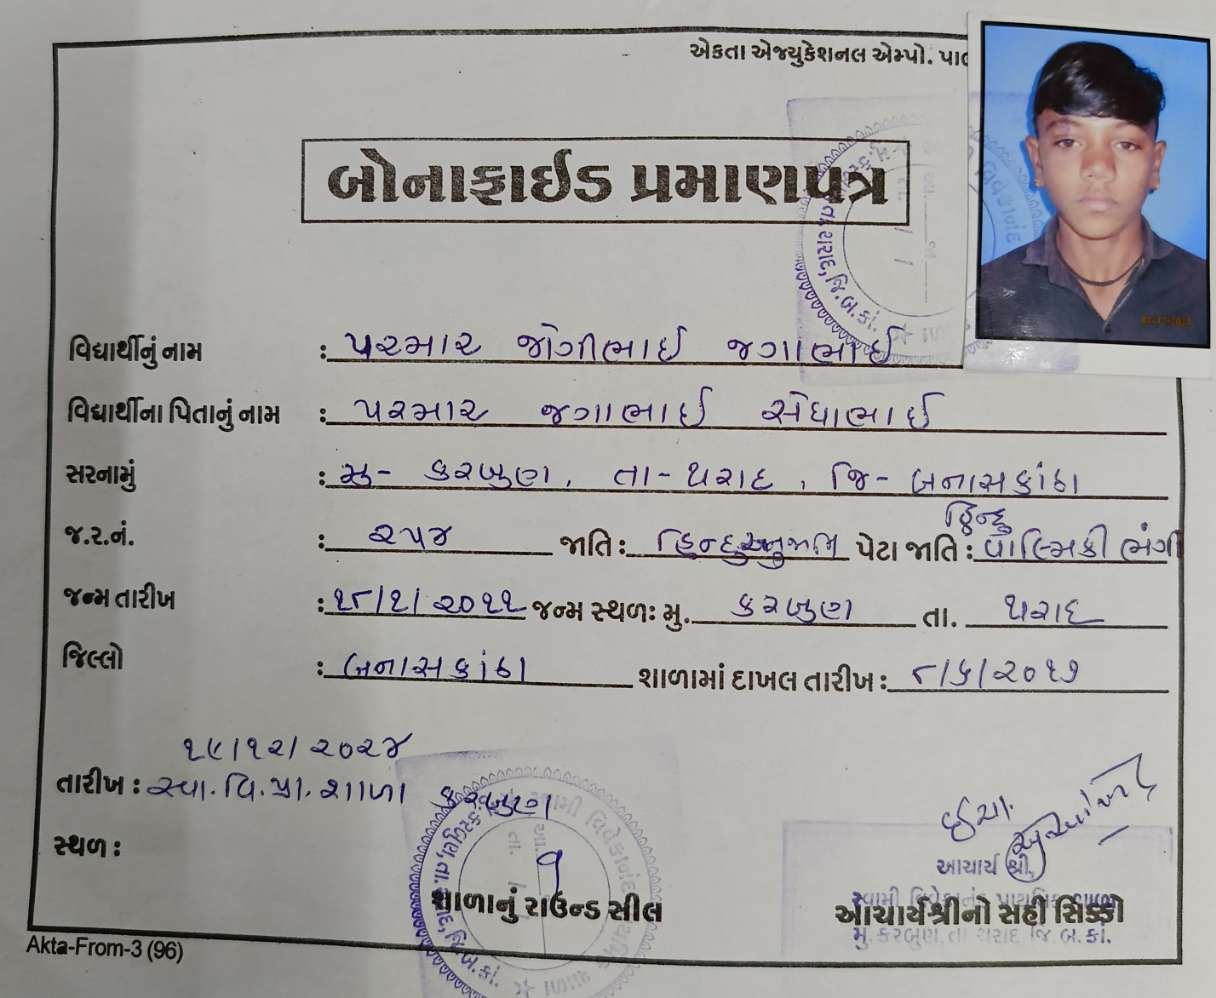 એકતા એજ્યુકેશનલ એમ્પો. પાલ
બોનાફાઈડ પ્રમાણપત્ર
વિદ્યાર્થીનું નામ : પરમાર જોગીભાઈ જગાભાઈ
વિદ્યાર્થીના પિતાનું નામ : પરમાર જગાભાઈ સેધાભાઈ
સરનામું : મુ- કરબુણ, તા-થરાદ, જિ- બનાસકાંઠા
જ.ર.નં. : ૨૫૪ જાતિ : હિન્દુ અનુજાતિ પેટા જાતિ : હિન્દુ વાલ્મિકી ભંગી
જન્મ તારીખ : ૧૮/૧/૨૦૧૧ જન્મ સ્થળઃ મુ. કરબુણ તા. થરાદ
જિલ્લો : બનાસકાંઠા શાળામાં દાખલ તારીખ : ૮/૬/૨૦૧૭
૧૯/૧૨/૨૦૨૪
તારીખ : સ્વા. વિ. પ્રા. શાળા કરબુણ
સ્થળ :
ઈચા.
આચાર્ય શ્રી,
સ્વામી વિવેકાનંદ પ્રાથમિક શાળા
મુ. કરબુણ. તા. થરાદ જિ. બ. કાં.
શાળાનું રાઉન્ડ સીલ
આચાર્યશ્રીનો સહી સિક્કો
Akta-From-3 (96)